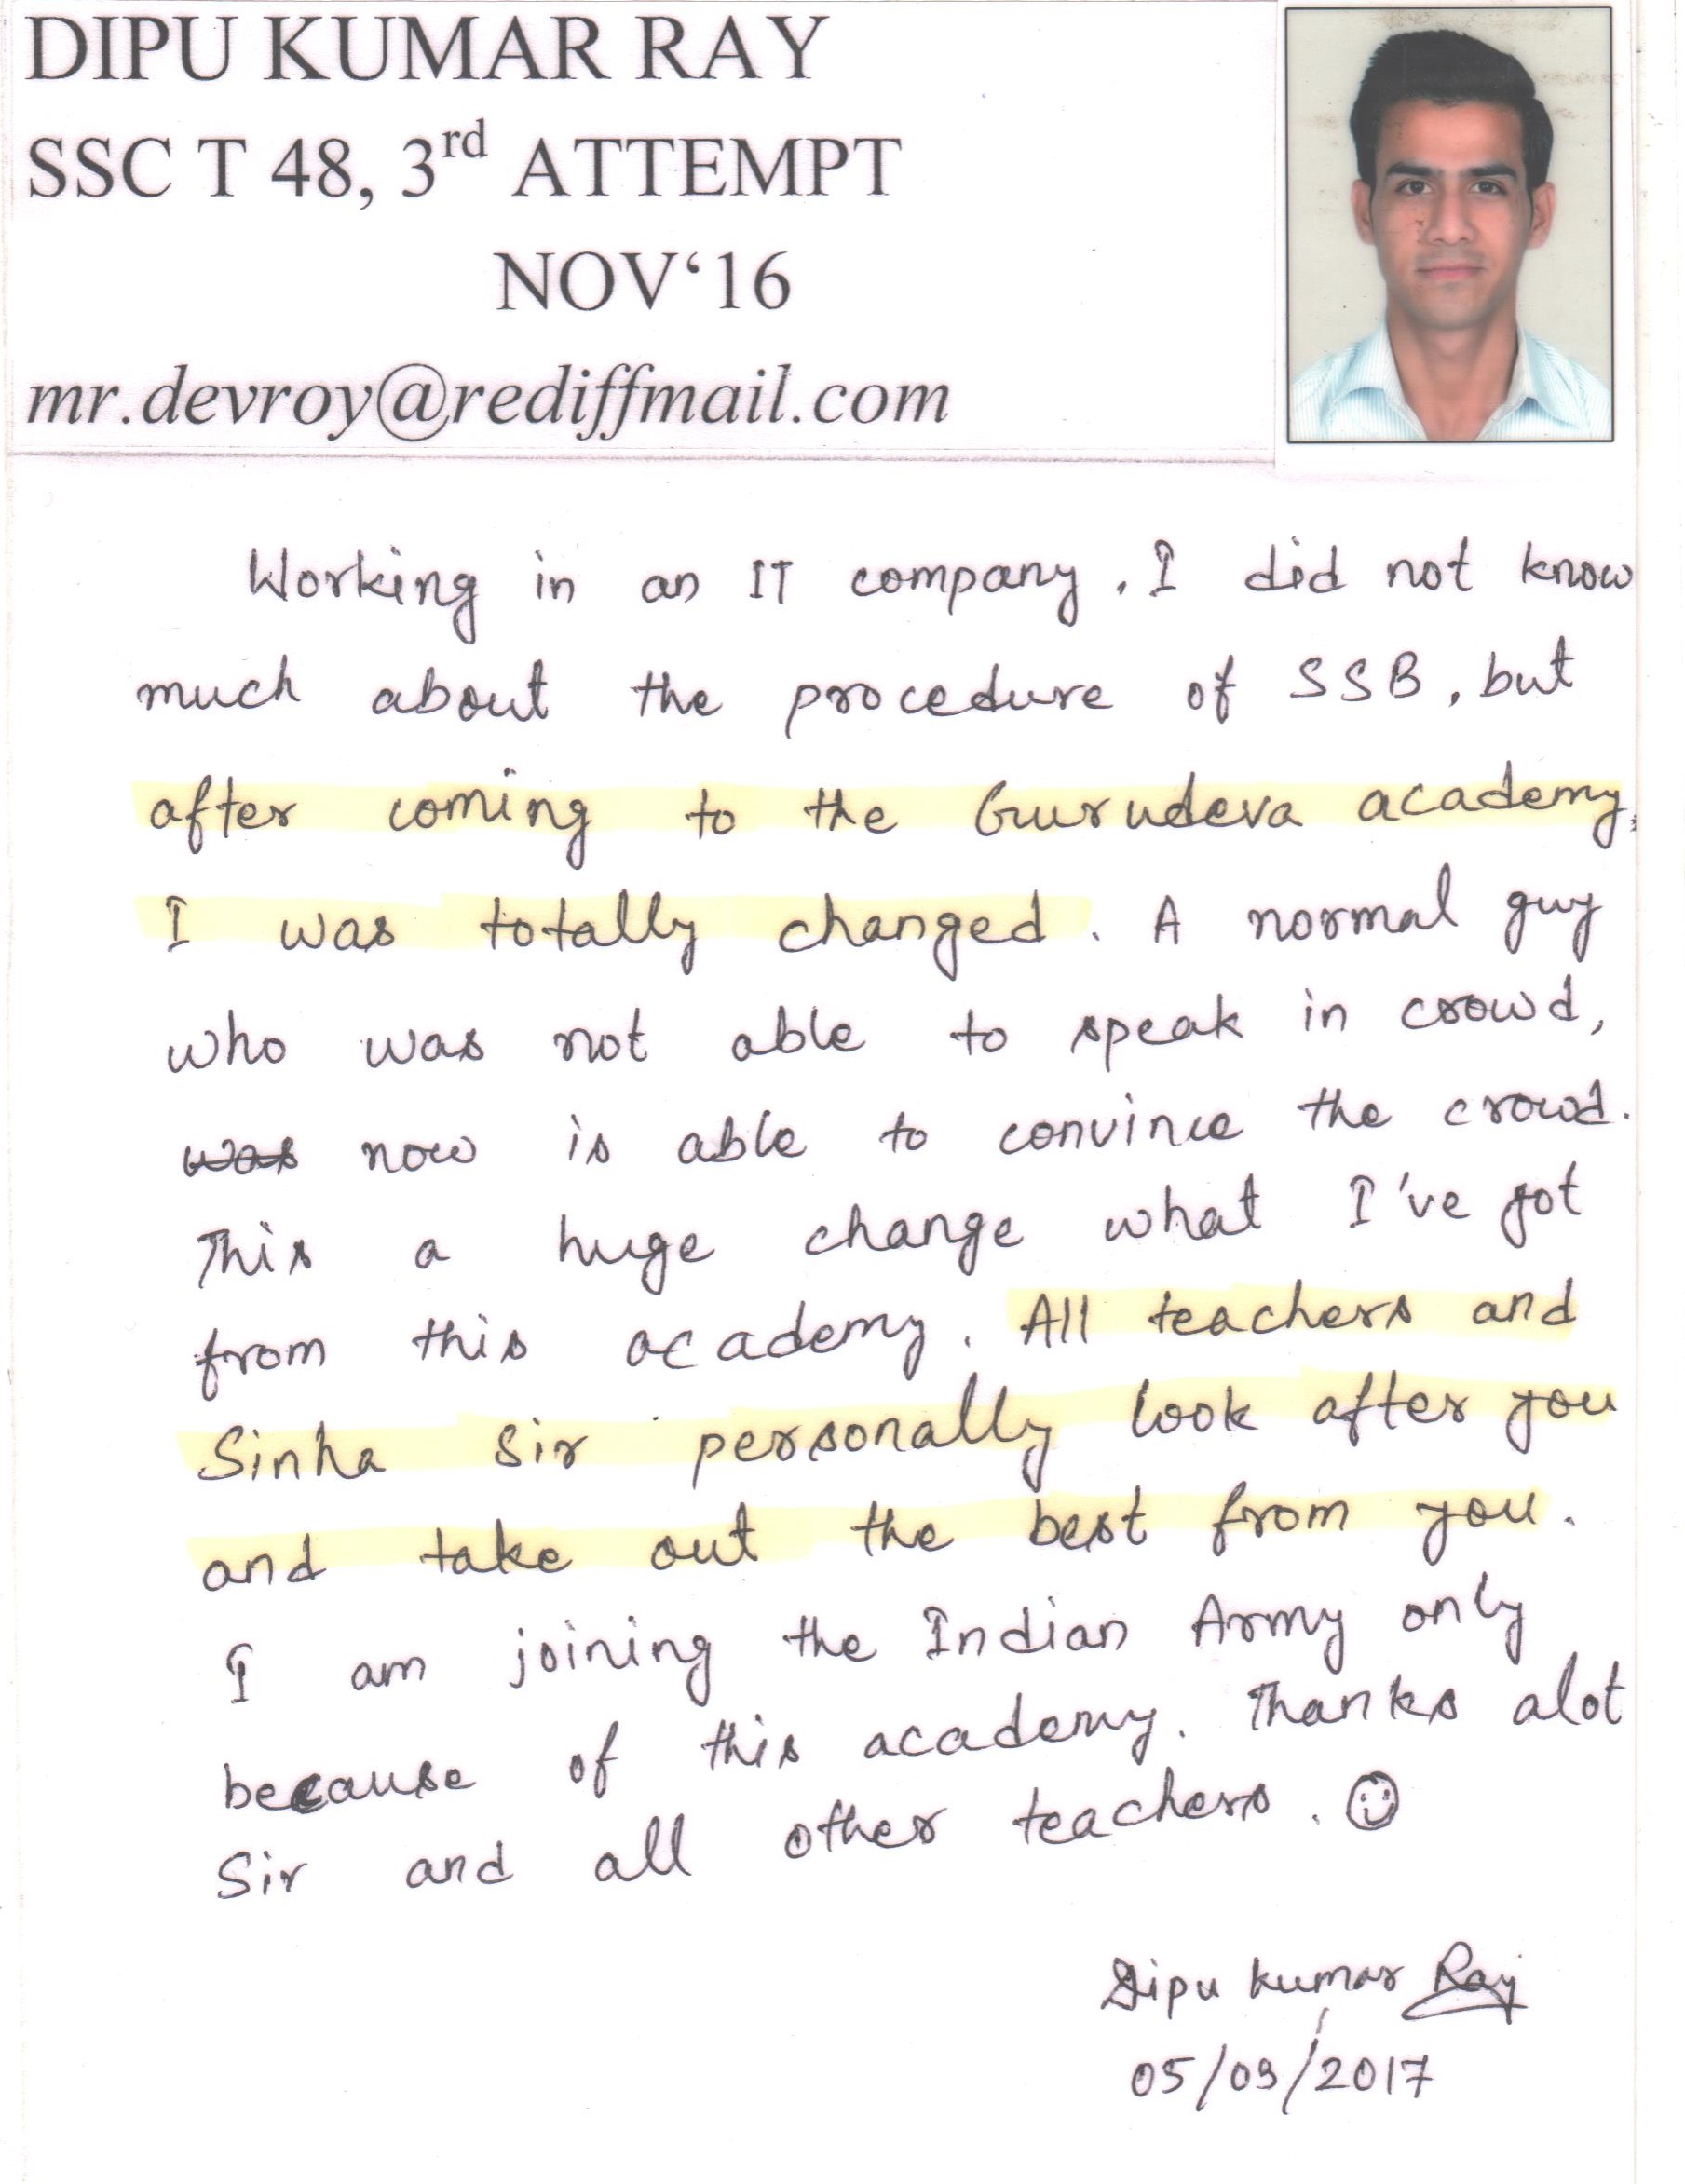 DIPU KUMAR RAY
SSC T 48, 3rd ATTEMPT
NOV‘16
mr.devroy@rediffmail.com
Working in an IT company, I did not know
much about the procedure of SSB, but
after coming to the Gurudeva academy,
I was totally changed. A normal guy
who was not able to speak in crowd,
was now is able to convince the crowd.
This a huge change what I've got
from this academy. All teachers and
Sinha Sir personally look after you
and take out the best from you.
I am joining the Indian Army only
because of this academy. Thanks alot
Sir and all other teachers. ☺
Dipu kumar Ray
05/09/2017